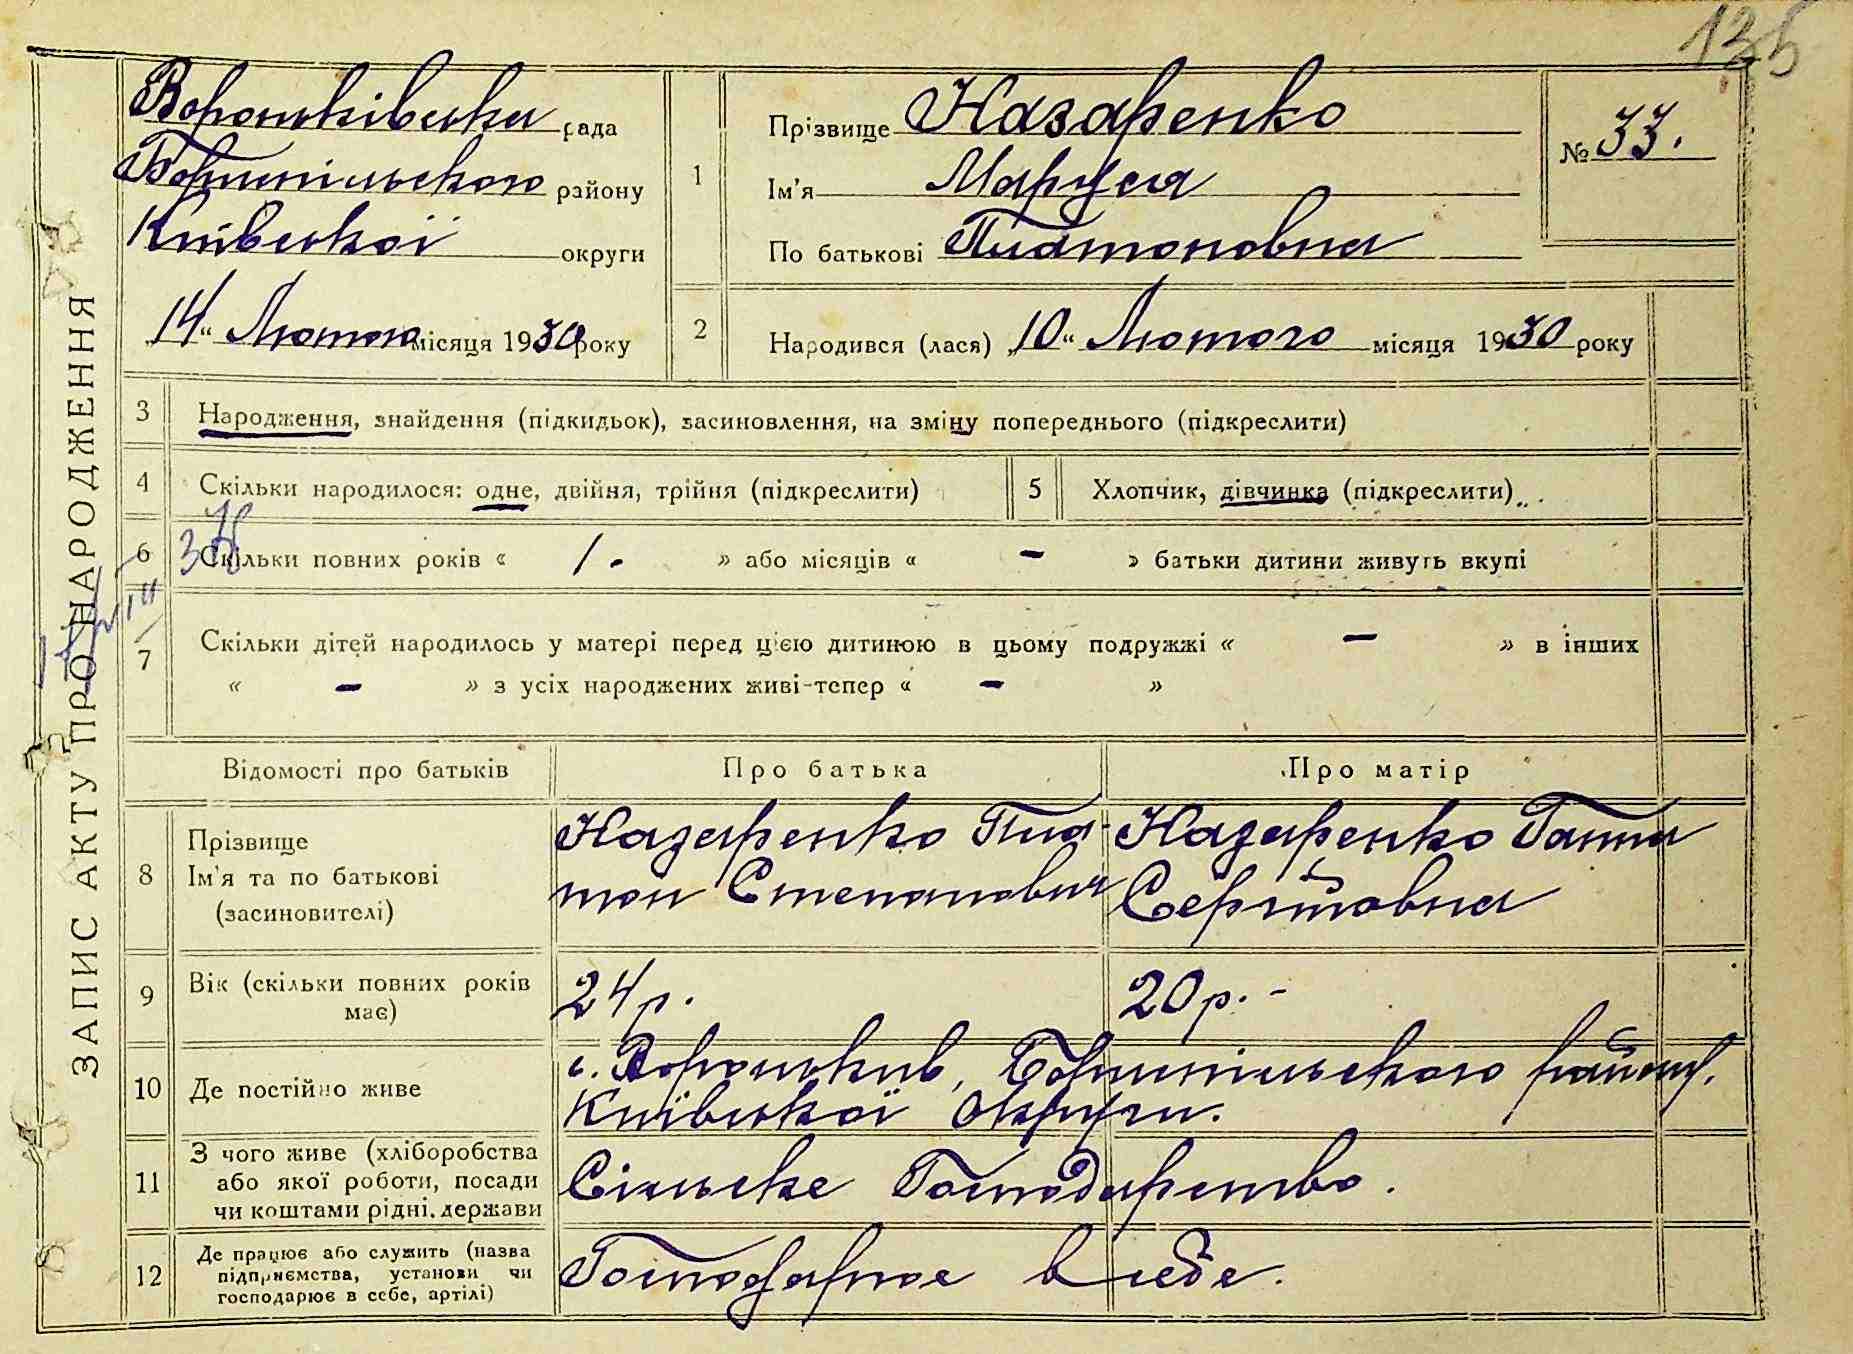 135
ЗАПИС АКТУ ПРО НАРОДЖЕННЯ
Вороньківська рада
Бориспільського району
Київської округи
„14“ Лютого місяця 1930 року
1
Прізвище Назаренко
Ім'я Маруся
По батькові Платоновна
№ 33.
2
Народився (лася) „10“ Лютого місяця 1930 року
3 Народження, знайдення (підкидьок), засиновлення, на зміну попереднього (підкреслити)
4 Скільки народилося: одне, двійня, трійня (підкреслити) 5 Хлопчик, дівчинка (підкреслити)
6 Скільки повних років « 1. » або місяців « - » батьки дитини живуть вкупі
7 Скільки дітей народилось у матері перед цією дитиною в цьому подружжі « - » в інших
« - » з усіх народжених живі-тепер « - »
Відомості про батьків Про батька Про матір
8
Прізвище
Ім'я та по батькові
(засиновителі)
Назаренко Пла-
тон Степанович
Назаренко Ганна
Сергіївна
9
Вік (скільки повних років
має)
24 р. 20 р. -
10 Де постійно живе
с. Вороньків, Бориспільського району,
Київської Округи.
11
З чого живе (хліборобства
або якої роботи, посади
чи коштами рідні, держави
Сільське Господарство.
12
Де працює або служить (назва
підприємства, установи чи
господарює в себе, артілі)
Господарює в себе.